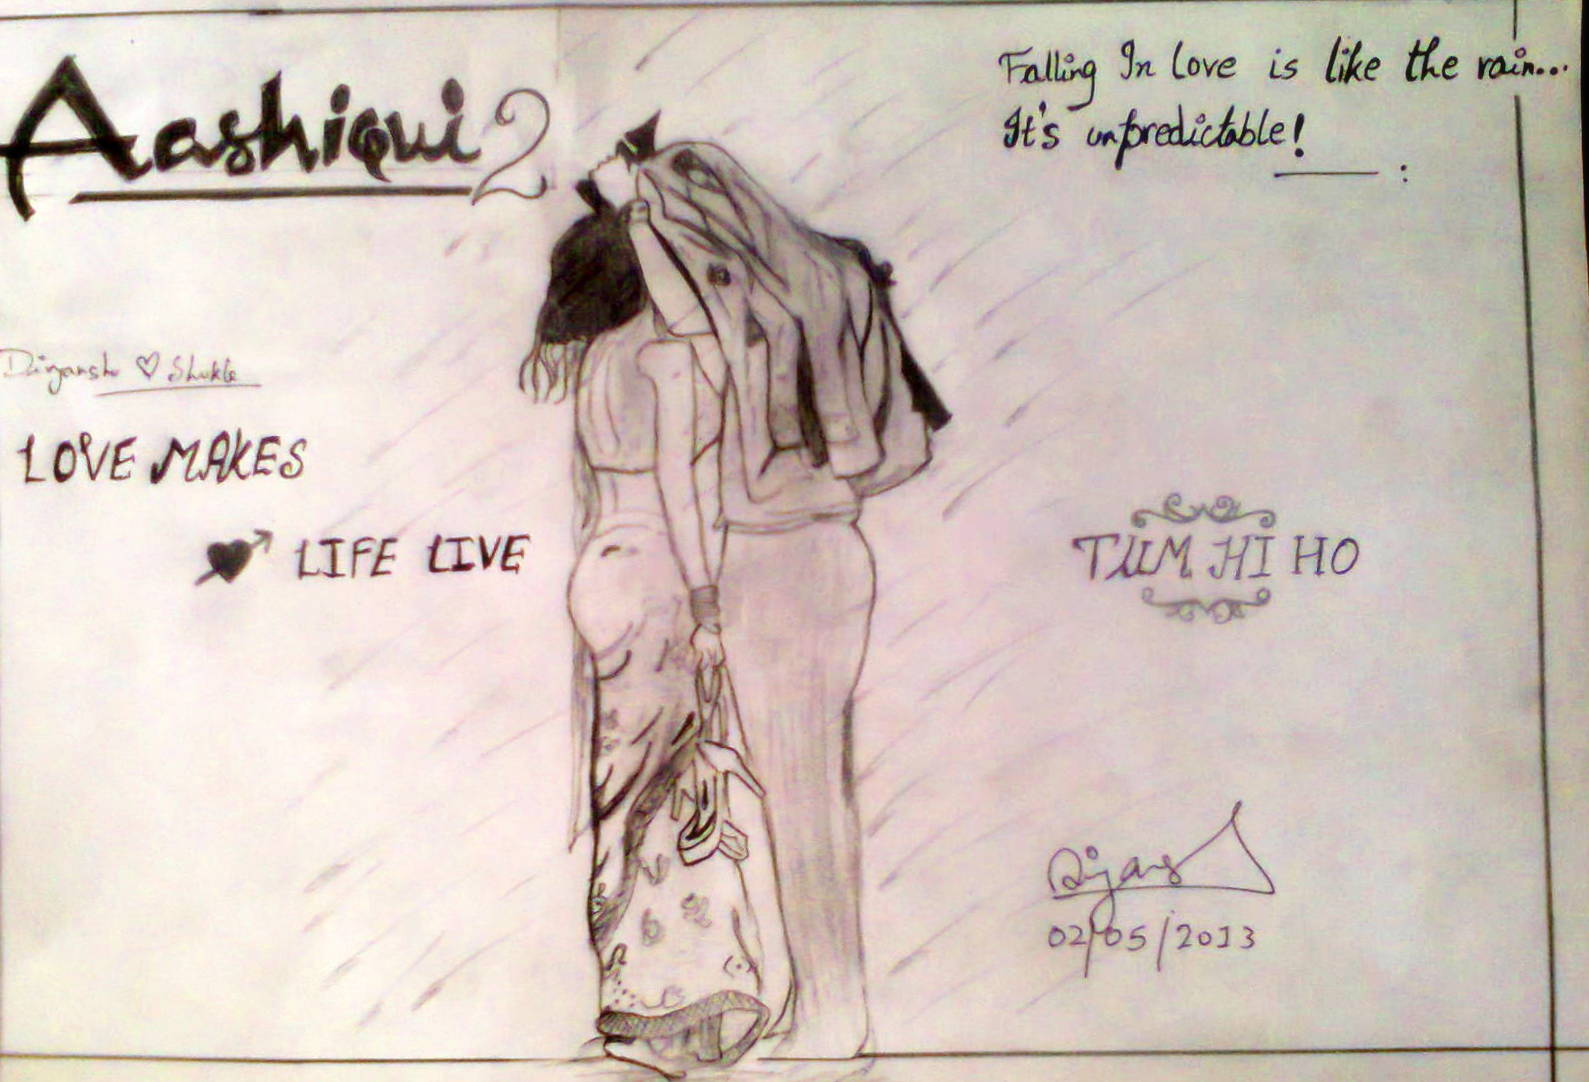 Aashiqui 2
Falling In love is like the rain...
It's unpredictable!
Divyanshu ♡ Shukla
LOVE MAKES
LIFE LIVE
TUM HI HO
02/05/2013